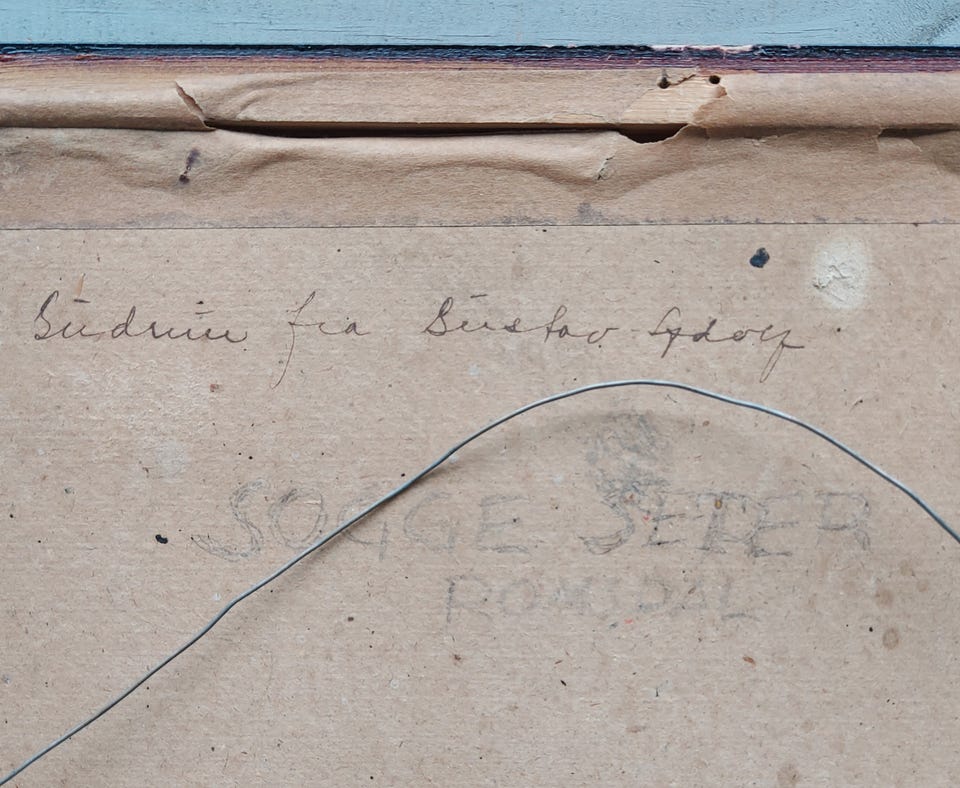 Gudrun fra Gustav Adolf
SOGGE SETER
ROMSDAL